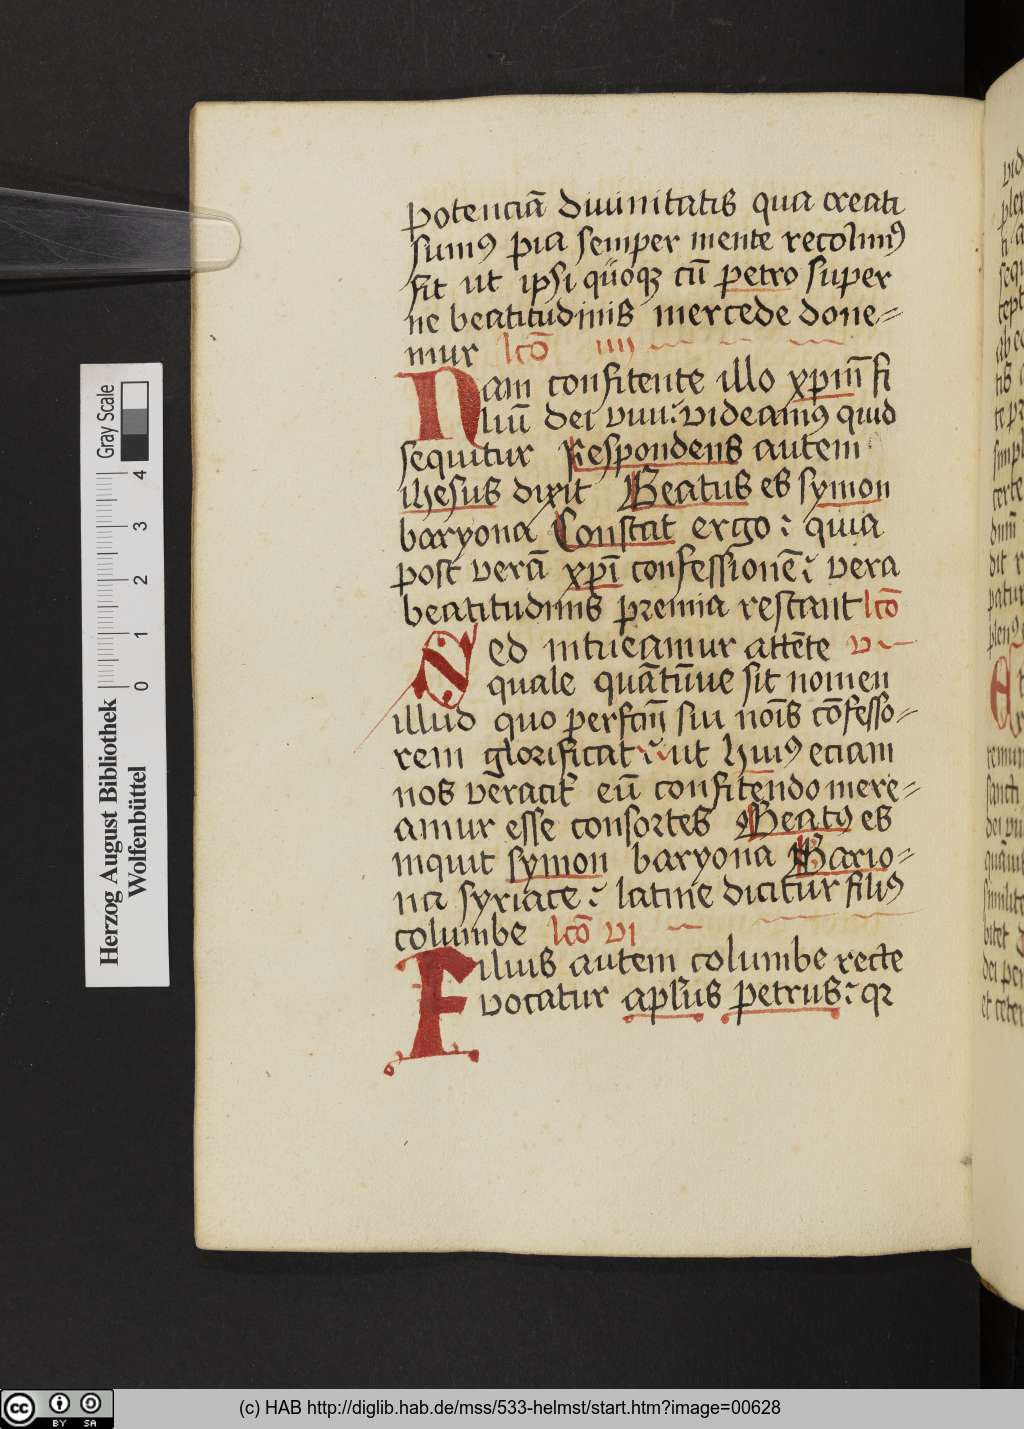 potenciā diuinitatis qua creati
sumꝰ pia semper mente recolimꝰ
fit ut ipsi quoqꝫ cū petro super
ne beatitudinis mercede done=
mur lcō iiij
Nam confitente illo xp̄m fi
liū dei viui: videamꝰ quid
sequitur Respondens autem
ihesus dixit Beatus es symon
baryona Constat ergo: quia
post verā xp̄i confessionē: vera
beatitudinis premia restant lcō
Sed intueamur attēte v
quale quātūue sit nomen
illud quo perfcm̄ sui nōis cōfesso=
rem glorificat: ut huiꝰ eciam
nos veracit̉ eū confitendo mere=
amur esse consortes Beatꝰ es
inquit symon baryona Bario=
na syriace: latine dicitur filiꝰ
columbe lcō vi
Filius autem columbe recte
vocatur apl̄us petrus: qꝛ
Gray Scale
4
3
2
1
0
Herzog August Bibliothek
Wolfenbüttel
cc BY SA
(c) HAB http://diglib.hab.de/mss/533-helmst/start.htm?image=00628